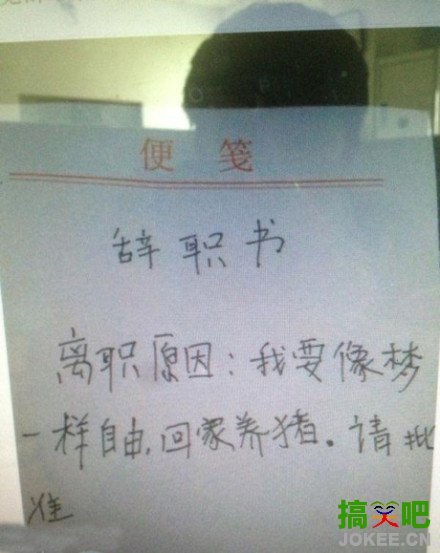 便笺
辞职书
离职原因:我要像梦
一样自由,回家养猪。请批
准
搞笑吧
JOKEE.CN